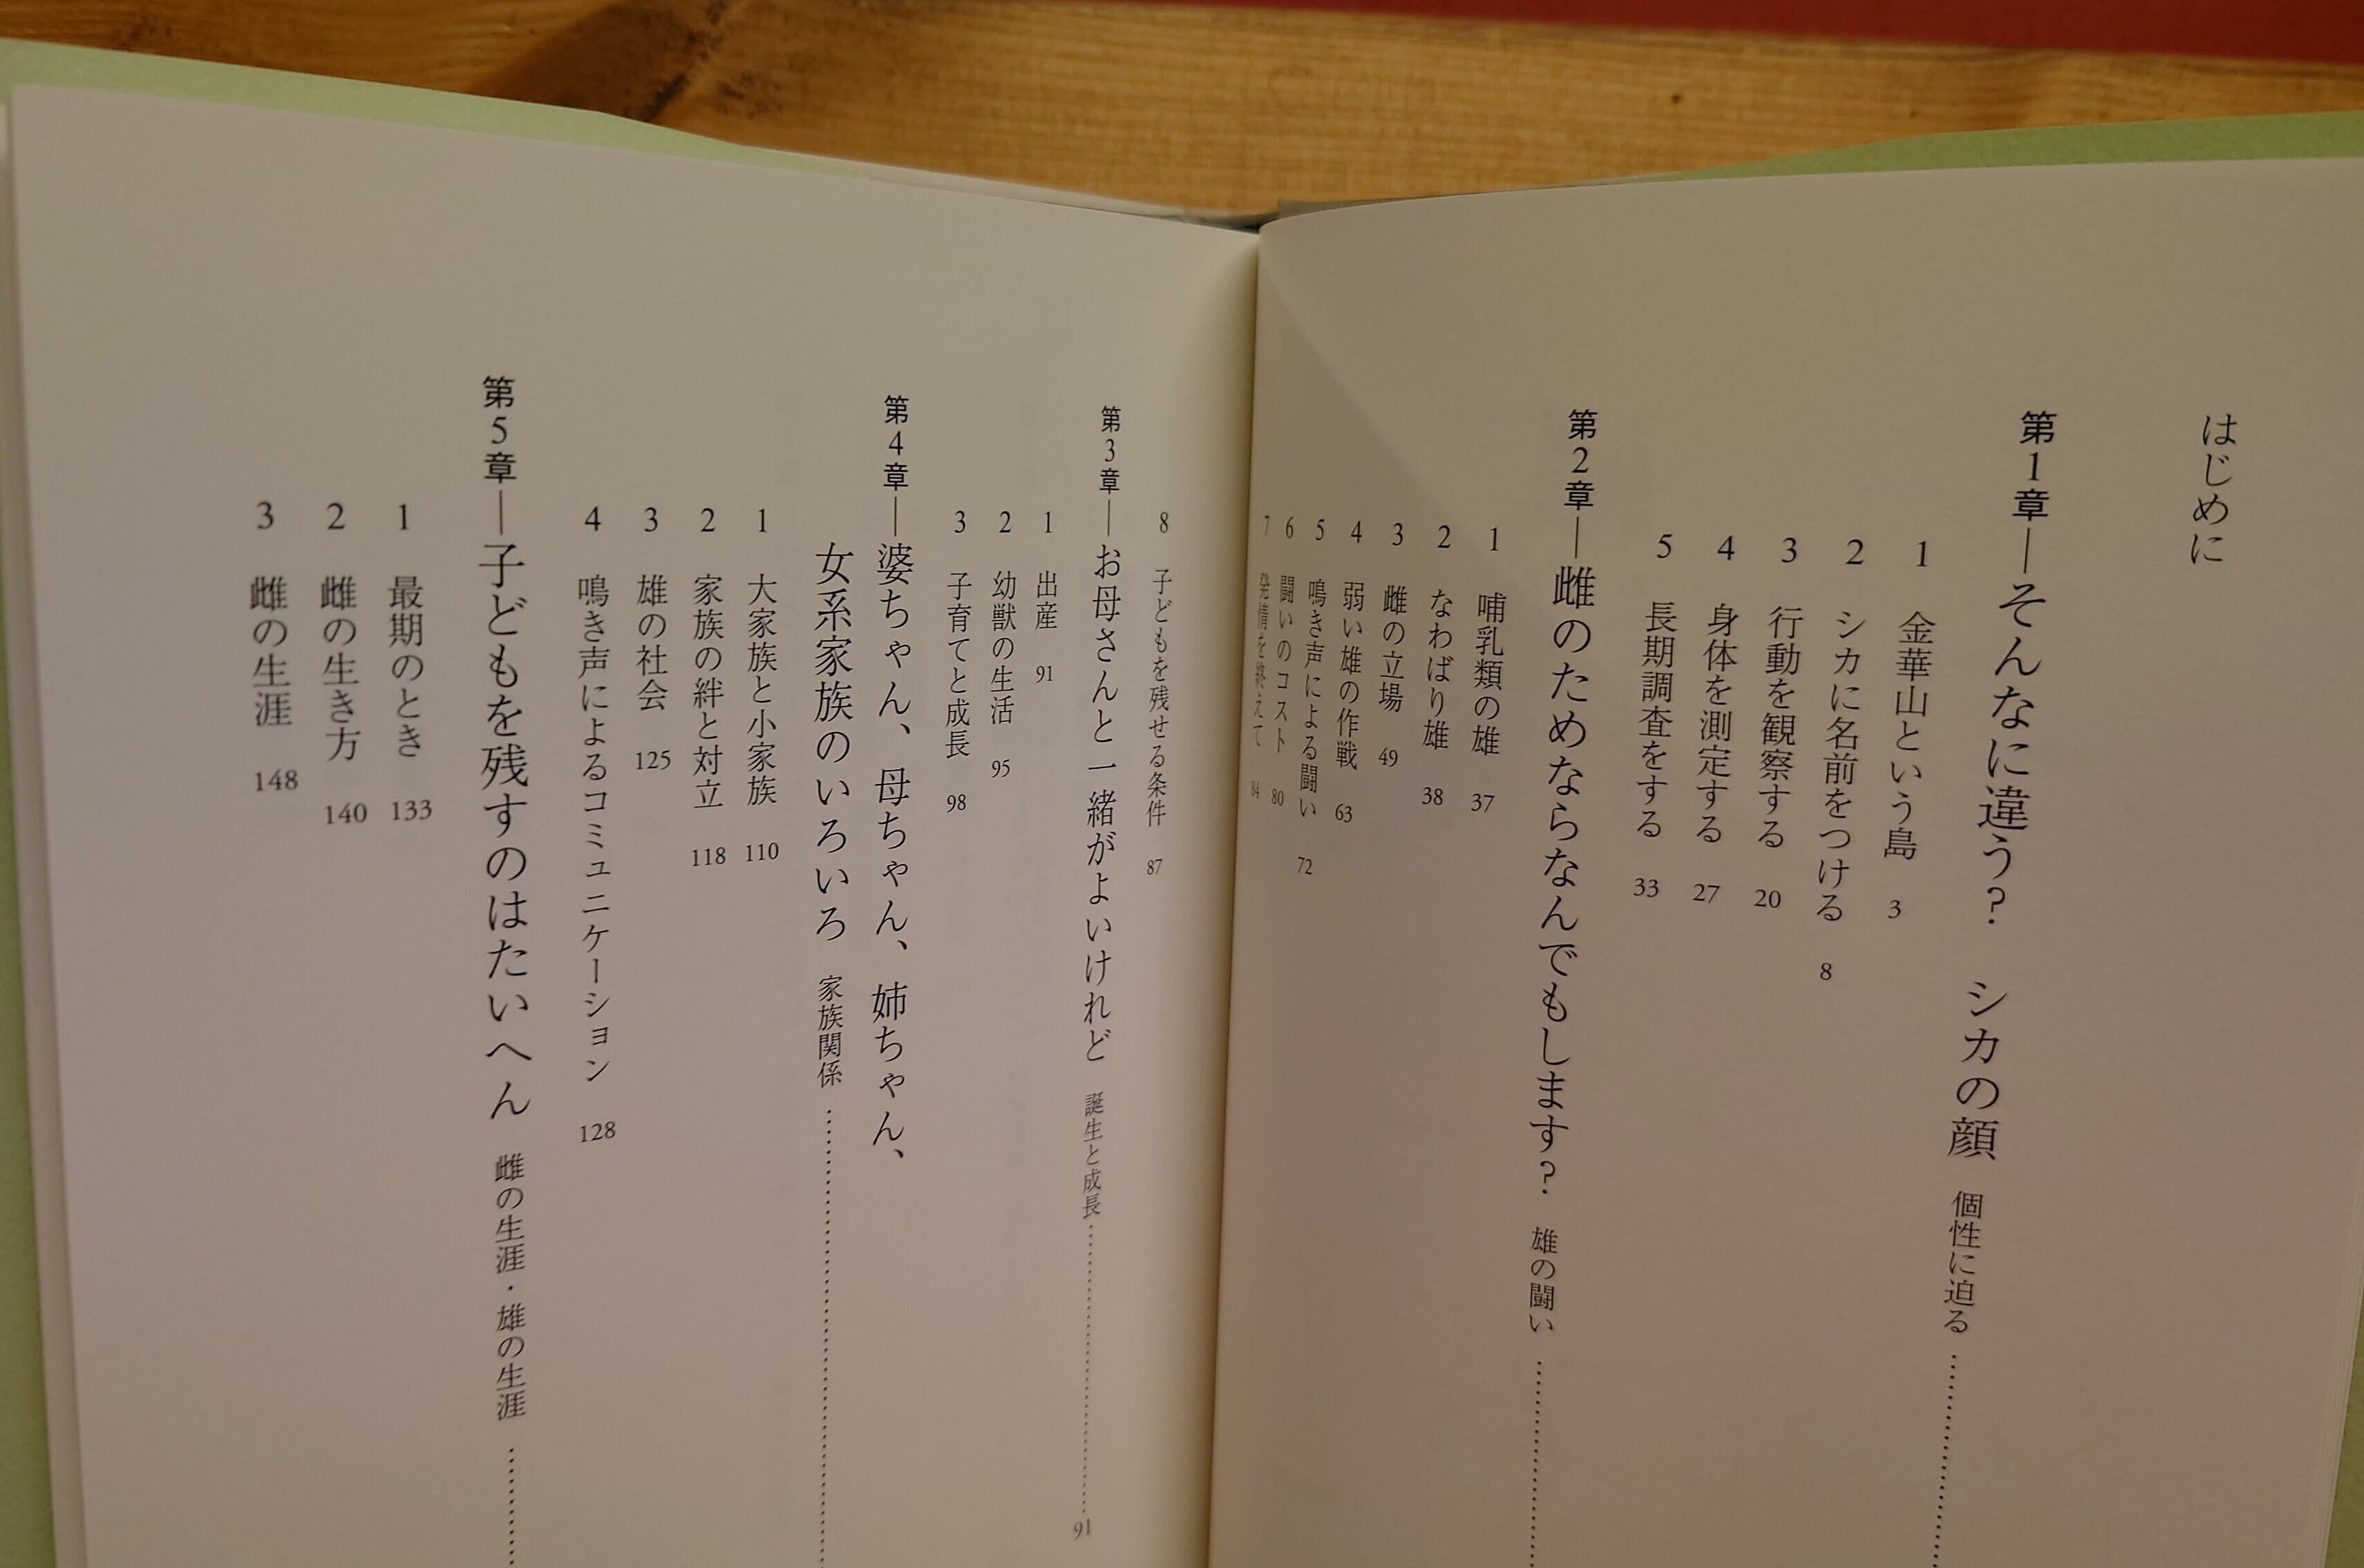 はじめに
第1章―そんなに違う？　シカの顔　個性に迫る……………
1　金華山という島　3
2　シカに名前をつける　8
3　行動を観察する　20
4　身体を測定する　27
5　長期調査をする　33
第2章―雌のためならなんでもします？　雄の闘い……………
1　哺乳類の雄　37
2　なわばり雄　38
3　雌の立場　49
4　弱い雄の作戦　63
5　鳴き声による闘い　72
6　闘いのコスト　80
7　発情を終えて　84
8　子どもを残せる条件　87
第3章―お母さんと一緒がよいけれど　誕生と成長……………91
1　出産　91
2　幼獣の生活　95
3　子育てと成長　98
第4章―婆ちゃん、母ちゃん、姉ちゃん、
女系家族のいろいろ　家族関係……………
1　大家族と小家族　110
2　家族の絆と対立　118
3　雄の社会　125
4　鳴き声によるコミュニケーション　128
第5章―子どもを残すのはたいへん　雌の生涯・雄の生涯……………
1　最期のとき　133
2　雌の生き方　140
3　雌の生涯　148